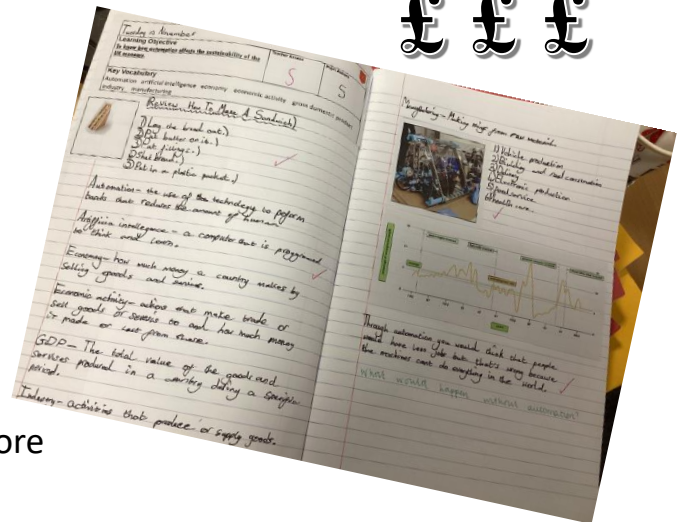 £ £ £
Tuesday 15 November
Learning Objective
To know how automation affects the sustainability of the
UK economy.
S
S
Key Vocabulary
Automation artificial intelligence economy economic activity gross domestic product
industry manufacturing
Review How To Make A Sandwich
1) Lay the bread out.
2) Put butter on it.
3) Put filling in.
4) Shut bread.
5) Put in a plastic packet.
Automation - the use of the technology to peform
tasks that reduces the amount of human
intellegence - a computer that is programmed
to think and learn.
Economy - how much money a country makes by
selling goods and
Economic activity - actions that make trade or
sell goods or to and how much money
is made or lost from
GDP - The total value of the goods and
services produced in a country during a
period.
Industry - activities that produce or supply goods.
- Making things from raw material.
1) Vehicle production
2) Building and road construction
3)
4) Electronic production
5) food service
6) health care
Through automation you would think that people
would have less jobs but that's wrong because
the machines cant do everything in the world.
What would happen without automation?
ore